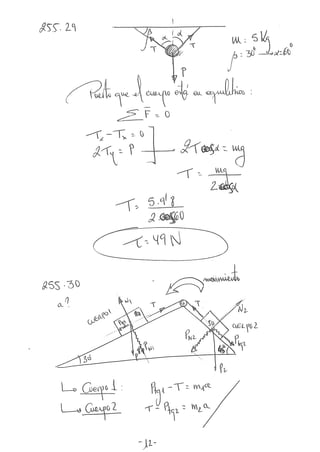 255.29
β α α
T T
m = 5 Kg
β = 30° → α = 60°
P
Puesto que el cuerpo está en equilibrio:
Σ F̄ = 0
Tx - Tx = 0
2Ty = P
2T cosα = mg
T = mg / 2 cosα
T = 5·9'8 / 2 cos60
T = 49 N
255.30
movimiento
a?
cuerpo 1
N1
T T
N2
cuerpo 2
PN2
30
45°
P2
↳ Cuerpo 1: - T = m1a
↳ Cuerpo 2 T - = m2a
-12-